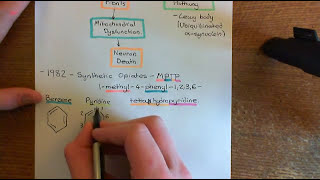 Fibrils
Mitochondrial
Dysfunction
Neuron
Death
Lewy body
(Ubiquitinated
α-synuclein)
- 1982 - Synthetic Opiates - MPTP
1-methyl-4-phenyl-1,2,3,6-
Benzene Pyridine tetrahydropyridine
2
6